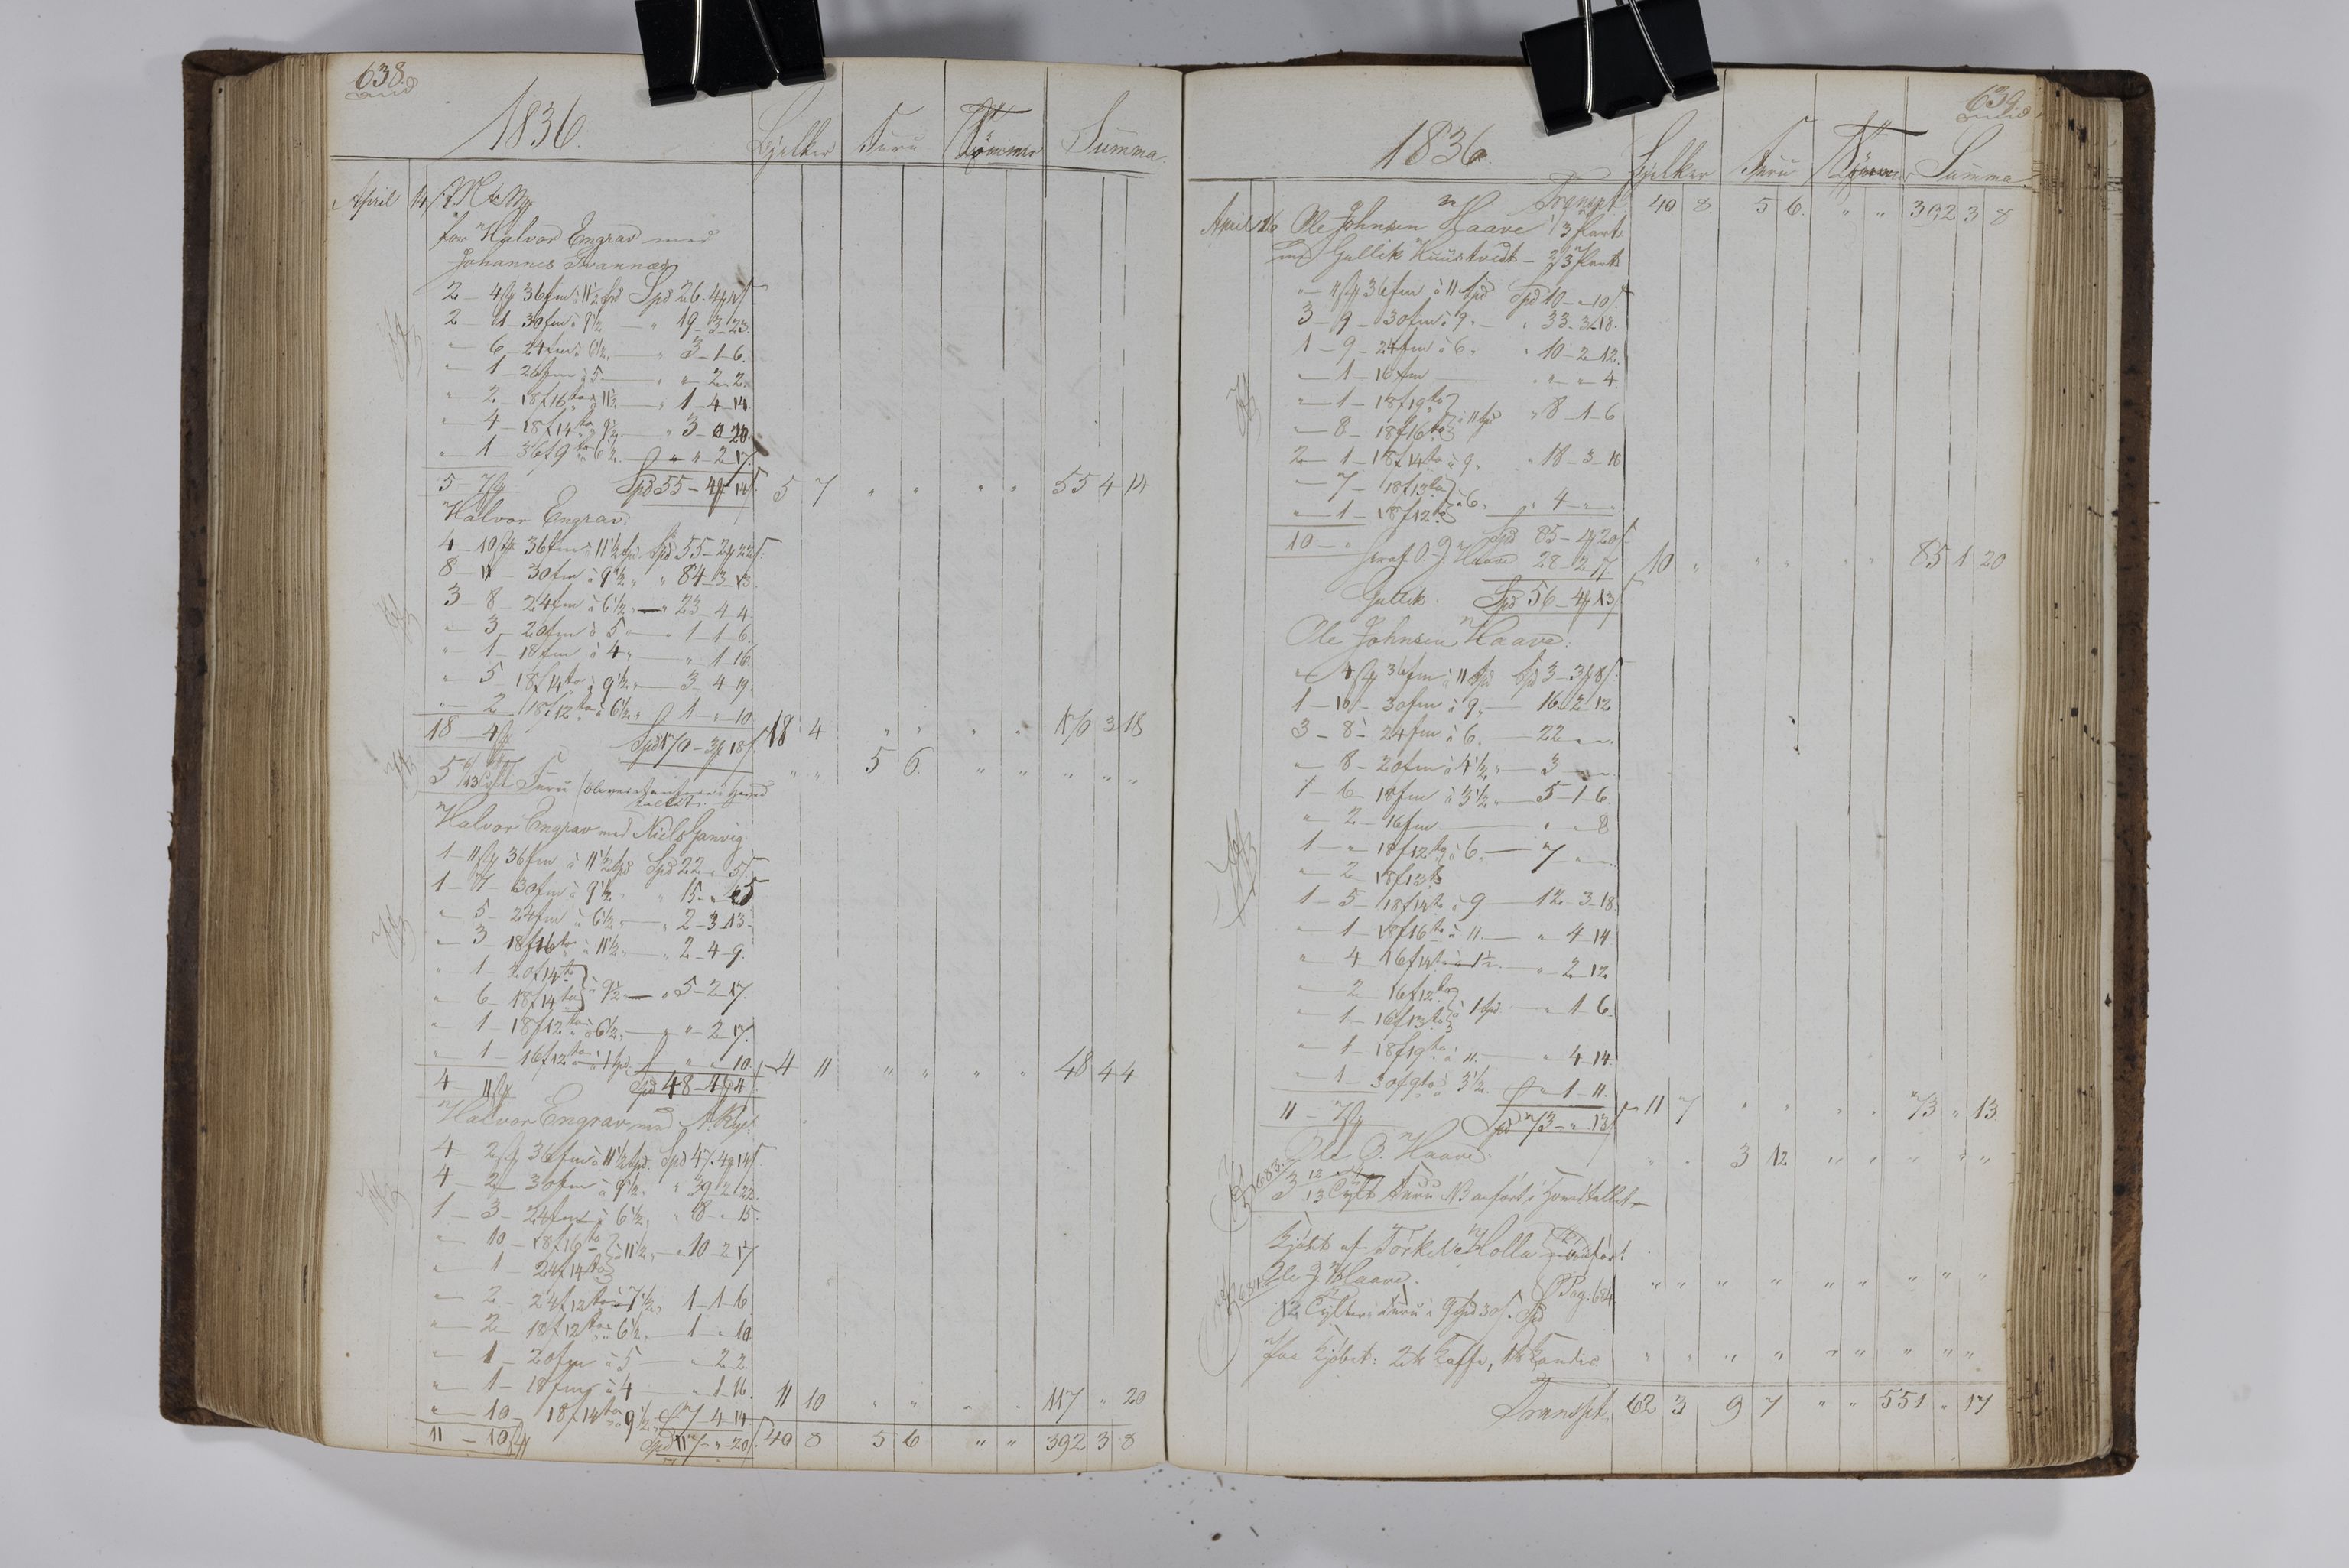 638.
1836.
Bjelker Furu Tömmer Summa.
April 14
for Halvor Engrav med
Johannes
2 - 4 36fm à 11½ Spd Spd 26 - 4 - 4
2 - 1 - 30fm à 9½ - " 19 - 3 - 23.
" - 6 - 24fm à 6½ - " 3 - 1 - 6.
" - 1 - 20fm à 5 - " " - 2 - 2.
" - 2 - 18f16 à 11½ - " 1 - 4 - 14
" - 4 - 18f14 à 9½ - " 3 - 20
" - 1 - 36f9 à 6½ - " " - 2 - 17.
5 - 7 Spd 55 - 4 - 14 5 7 " " " " 55 4 14
Halvor Engrav:
4 - 10 36fm à 11½ Spd. Spd 55 - 2 - 22
8 - 11 - 30fm à 9½ " " 84 - 3 - 13
3 - 8 - 24fm à 6½ - " 23 - 4 - 4
" - 3 - 20fm à 5 - " 1 - 1 - 6.
" - 1 - 18fm à 4 " - " 1 - 16
" - 5 - 18f14 à 9½ - 3 - 4 - 19.
" - 2 - 18f12 à 6½ " 1 - " - 10.
18 - 4 Spd 170 - 3 - 18 18 4 " " " " 170 3 18
5 6/13 Furu " " 5 6 " " " " "
Halvor Engrav med Niels Ganvig
1 - 11 36fm à 11½ Spd Spd 22 - " - 5
1 - 7 - 30fm à 9½ " 15 - "
" - 5 - 24fm à 6½ - " 2 - 3 - 13
" - 3 - 18f16 à 11½ - " 2 - 4 - 9.
" - 1 - 20f14
" - 6 - 18f14 à 9½ - " 5 - 2 - 17.
" - 1 - 18f12 à 6½ - " " - 2 - 17.
" - 1 - 16f12 à 1 Spd " " 10.
4 - 11 Spd 48 - 4 - 4 4 11 " " " " 48 4 4
Halvor Engrav med
4 - 2 36fm à 11½ Spd. Spd 47 - 4 - 14
4 - 2 - 30fm à 9½ " 39 - 2 - 22.
1 - 3 - 24fm à 6½ " 8 - " - 15.
" - 10 - 18f16 à 11½ - " 10 - 2 - 17
" - 1 - 24f14
" - 2 - 24f12 à 7½ " 1 - 1 - 6
" - 2 - 18f12 6½ - 1 - " - 10.
" - 1 - 20fm à 5 - " 2 - 2
" - 1 - 18fm à 4 - " 1 - 16.
" - 10 - 18f14 9½ 7 - 4 - 14 11 10 " " " " 117 " 20
11 - 10 Spd 117 - " - 20 40 8 5 6 " " 392 3 8
639.
1836.
Bjelker Furu Tömmer Summa
Transpt. 40 8. 5 6. " " 392 3 8
April 16 Ole Johnsen Haave 1/3 Part
med Gullik Kuustvedt - 2/3 Part
" - 11 36fm à 11 Spd Spd 10 - " - 10
3 - 9 - 30fm à 9 - " 33 - 3 - 18.
1 - 9 - 24fm à 6 " " 10 - 2 - 12.
" - 1 - 16fm - " " - " - 4.
" - 1 - 18f19
" - 8 - 18f16 à 11 Spd " 8 - 1 - 6
2 - 1 - 18f14 à 9 " " 18 - 3 - 18
" - 7 - 18f13
" - 1 - 18f12 à 6. " 4 - " - "
10 - " Spd 85 - - 20
heraf O. J. Haave 28 - 2 - 7 10 " " " " " 85 1 20
Gullik. Spd 56 - 4 - 13
Ole Johnsen Haave:
" - 4 36fm à 11 Spd Spd 3 - 3 - 8
1 - 10 - 30fm à 9 - 16 - 2 - 12
3 - 8 - 24fm à 6. - 22 - " - "
" - 8 - 20fm à 4½ - 3 - " - "
1 - 6 - 18fm à 3½ - 5 - 1 - 6.
" - 2 - 16fm - " " 8
1 - " - 18f12 à 6 - 7 - " - "
" - 2 - 18f13
1 - 5 - 18f14 à 9 - 12 - 3 - 18.
" - 1 - 18f16 à 11. - " 4 - 14
" - 4 16f14 à 1½ - " 2 - 12
" - 2 - 16f12
" - 1 - 16f13 à 1 Spd - " 1 - 6.
" - 1 - 18f19 à 11. - " 4 - 14.
" - 1 - 30f9 3½ " 1 - 11.
11 - 7 Spd 73 - " - 13 11 7 " " " " 73 " 13
Ole Haave. " " 3 12 " " " " "
3 12/13 Tylt Furu
Kjöbt af Torkel Holla
Ole J. Haave. Pag: 684.
12 Tylter Furu " " " " " " " " "
Paa Kjöbet: 2 Kaffe, 1 Kandis " " " " " " " " "
Transpt. 62 3 9 7 " " 551 " 17